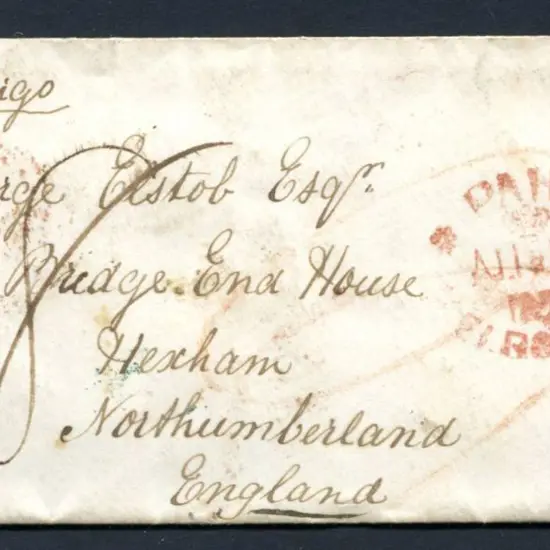 igo
rge Elstob Esqr
Bridge End House
Hexham
Northumberland
England
8
PAI